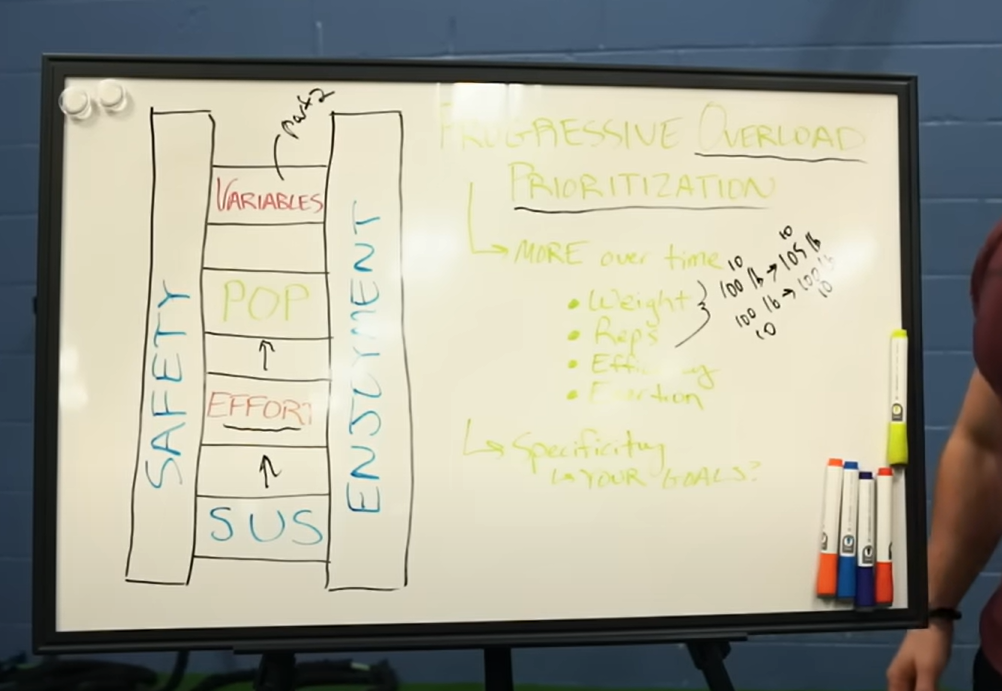 Part 2
VARIABLES
POP
↑
EFFORT
↑
SUS
SAFETY
ENJOYMENT
PROGRESSIVE OVERLOAD
PRIORITIZATION
↳ MORE over time
• Weight
• Reps
• Execution
10 10
100 lb → 105 lb
100 lb → 100 lb
10 10
↳ Specificity
↳ YOUR GOALS?